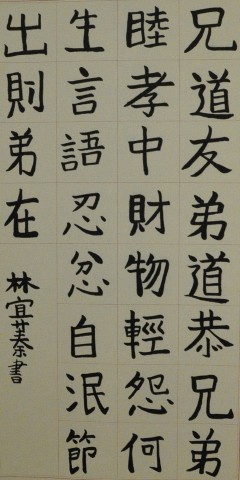 兄道友弟道恭兄弟
睦孝中財物輕怨何
生言語忍忿自泯節
出則弟在
林宜蓁書